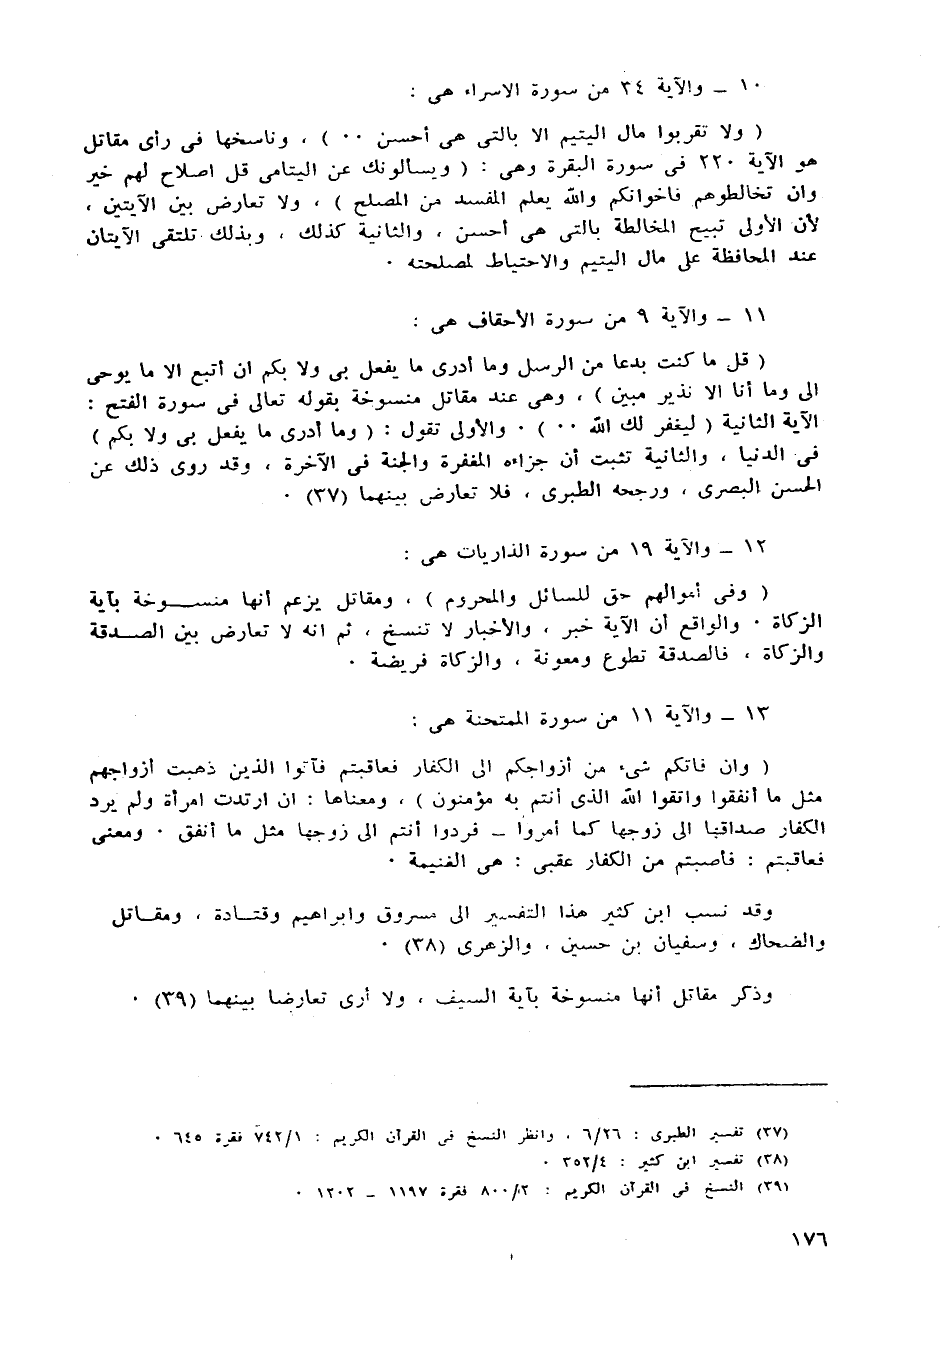 ١٠ ــ والآية ٣٤ من سورة الاسراء هى :
( ولا تقربوا مال اليتيم الا بالتى هى أحسن ٠٠ ) ، وناسخها فى رأى مقاتل
هو الآية ٢٢٠ فى سورة البقرة وهى : ( ويسألونك عن اليتامى قل اصلاح لهم خير
وان تخالطوهم فاخوانكم والله يعلم المفسد من المصلح ) ، ولا تعارض بين الآيتين ،
لأن الأولى تبيح المخالطة بالتى هى أحسن ، والثانية كذلك ، وبذلك تلتقى الآيتان
عند المحافظة على مال اليتيم والاحتياط لمصلحته ٠
١١ ــ والآية ٩ من سورة الأحقاف هى :
( قل ما كنت بدعا من الرسل وما أدرى ما يفعل بى ولا بكم ان أتبع الا ما يوحى
الى وما أنا الا نذير مبين ) ، وهى عند مقاتل منسوخة بقوله تعالى فى سورة الفتح :
الآية الثانية ( ليغفر لك الله ٠٠ ) ٠ والأولى تقول : ( وما أدرى ما يفعل بى ولا بكم )
فى الدنيا ، والثانية تثبت أن جزاءه المغفرة والجنة فى الآخرة ، وقد روى ذلك عن
الحسن البصرى ، ورجحه الطبرى ، فلا تعارض بينهما (٣٧) ٠
١٢ ــ والآية ١٩ من سورة الذاريات هى :
( وفى أموالهم حق للسائل والمحروم ) ، ومقاتل يزعم أنها منســـوخة بآية
الزكاة ٠ والواقع أن الآية خبر ، والأخبار لا تنسخ ، ثم انه لا تعارض بين الصــدقة
والزكاة ، فالصدقة تطوع ومعونة ، والزكاة فريضة ٠
١٣ ــ والآية ١١ من سورة الممتحنة هى :
( وان فاتكم شىء من أزواجكم الى الكفار فعاقبتم فآتوا الذين ذهبت أزواجهم
مثل ما أنفقوا واتقوا الله الذى أنتم به مؤمنون ) ، ومعناها : ان ارتدت امرأة ولم يرد
الكفار صداقها الى زوجها كما أمروا ــ فردوا أنتم الى زوجها مثل ما أنفق ٠ ومعنى
فعاقبتم : فأصبتم من الكفار عقبى : هى الغنيمة ٠
وقد نسب ابن كثير هذا التفسير الى مسروق وابراهيم وقتــادة ، ومقــاتل
والضحاك ، وسفيان بن حسين ، والزهرى (٣٨) ٠
وذكر مقاتل أنها منسوخة بآية السيف ، ولا أرى تعارضا بينهما (٣٩) ٠
(٣٧) تفسير الطبرى : ٦/٢٦ ، وانظر النسخ فى القرآن الكريم : ٧٤٢/١ فقرة ٦٤٥ ٠
(٣٨) تفسير ابن كثير : ٣٥٢/٤ ٠
(٣٩) النسخ فى القرآن الكريم : ٨٠٠/٢ فقرة ١١٩٧ ــ ١٢٠٢ ٠
١٧٦